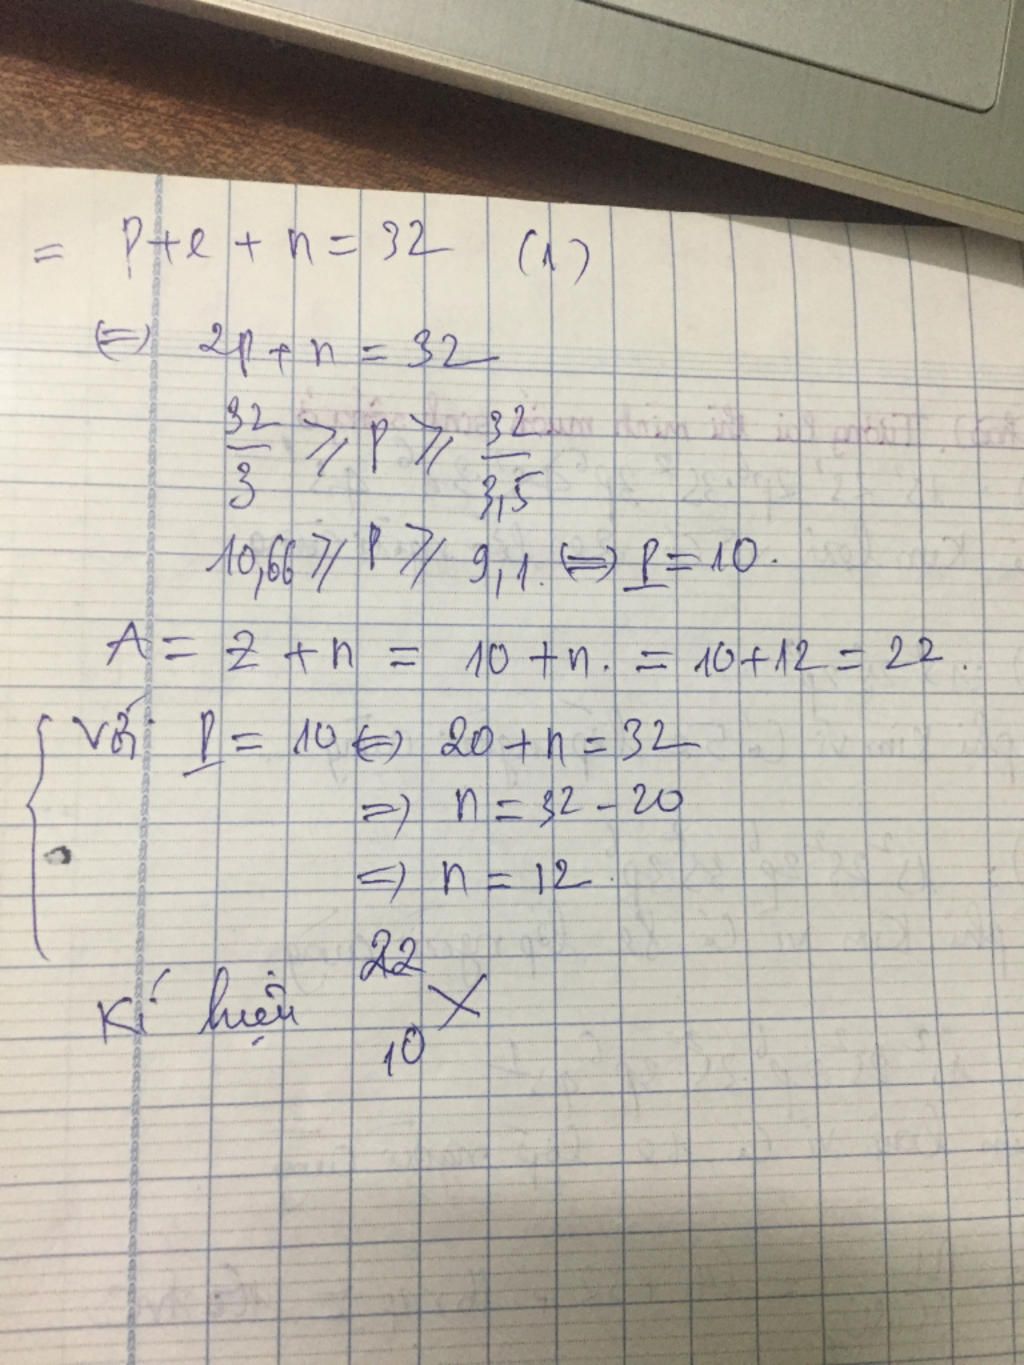 = P+e + n = 32 (1)
(=) 2P + n = 32
32/3 ⩾ P ⩾ 32/3,5
10,66 ⩾ P ⩾ 9,1. (=) P = 10.
A = Z + n = 10 + n. = 10+12 = 22.
Với P = 10 (=) 20 + n = 32
=) n = 32 - 20
=) n = 12.
22
Kí hiệu X
10